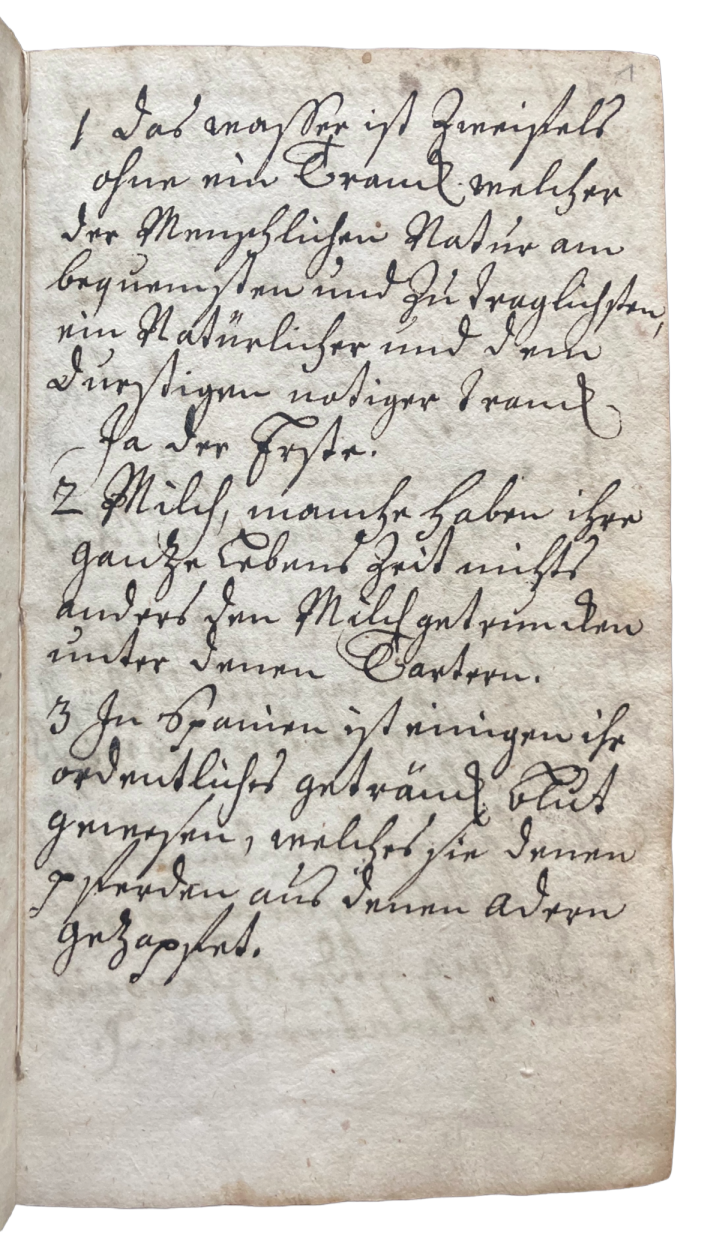 1
1 Das wasser ist Zweifels
ohne ein Tranck welcher
der Menschlichen Natur am
bequemsten und Zu traglichsten,
ein Natürlicher und dem
durstigen notiger tranck
Ja der Erste.
2 Milch, manche haben ihre
gantze Lebens Zeit nichts
anders den Milch getruncken
unter denen Tartern.
3 In Spanien ist einigen ihr
ordentliches geträncke blut
gewesen, welches sie denen
pferden aus denen adern
gezapfet.